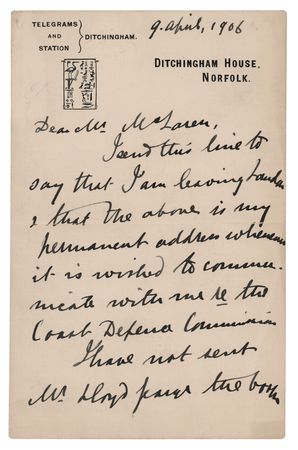 TELEGRAMS
AND
STATION
DITCHINGHAM.
9. April, 1906
DITCHINGHAM HOUSE,
NORFOLK.
Dear Mr. McLaren,
I send this line to
say that I am leaving London
& that the above is my
permanent address whenever
it is wished to commu-
nicate with me re the
Coast Defence Commission
I have not sent
Mr. Lloyd George the books